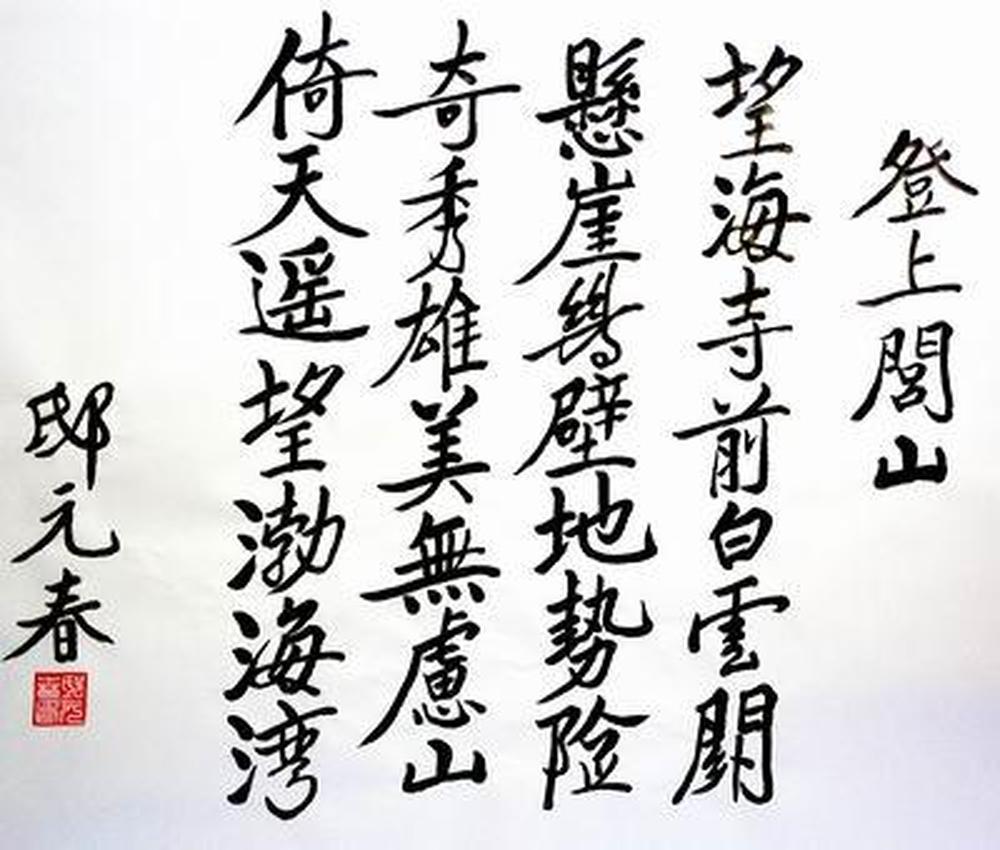 登上閭山
望海寺前白雲開
懸崖絕壁地勢险
奇秀雄美無慮山
倚天遥望渤海湾
邸元春